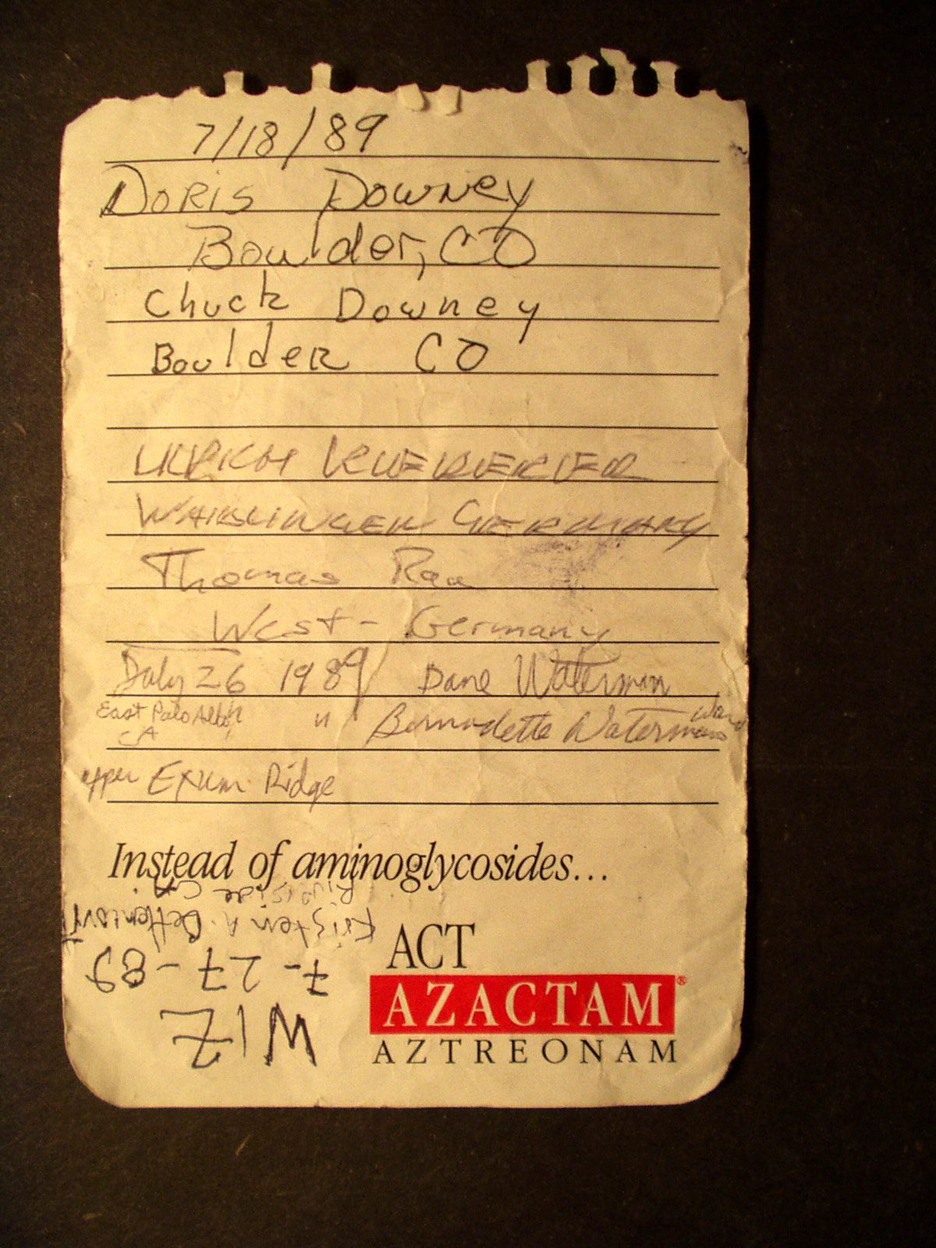 7/18/89
Doris Downey
Boulder, CO
Chuck Downey
Boulder CO
Germany
Thomas Rau
West - Germany
July 26 1989 Dane Waterman
East Palo Alto, CA " Bernadette Waterman Ward
upper Exum Ridge
Instead of aminoglycosides...
ACT
AZACTAM®
AZTREONAM
WIZ
7-27-89
Kristen A.
Riverside CA